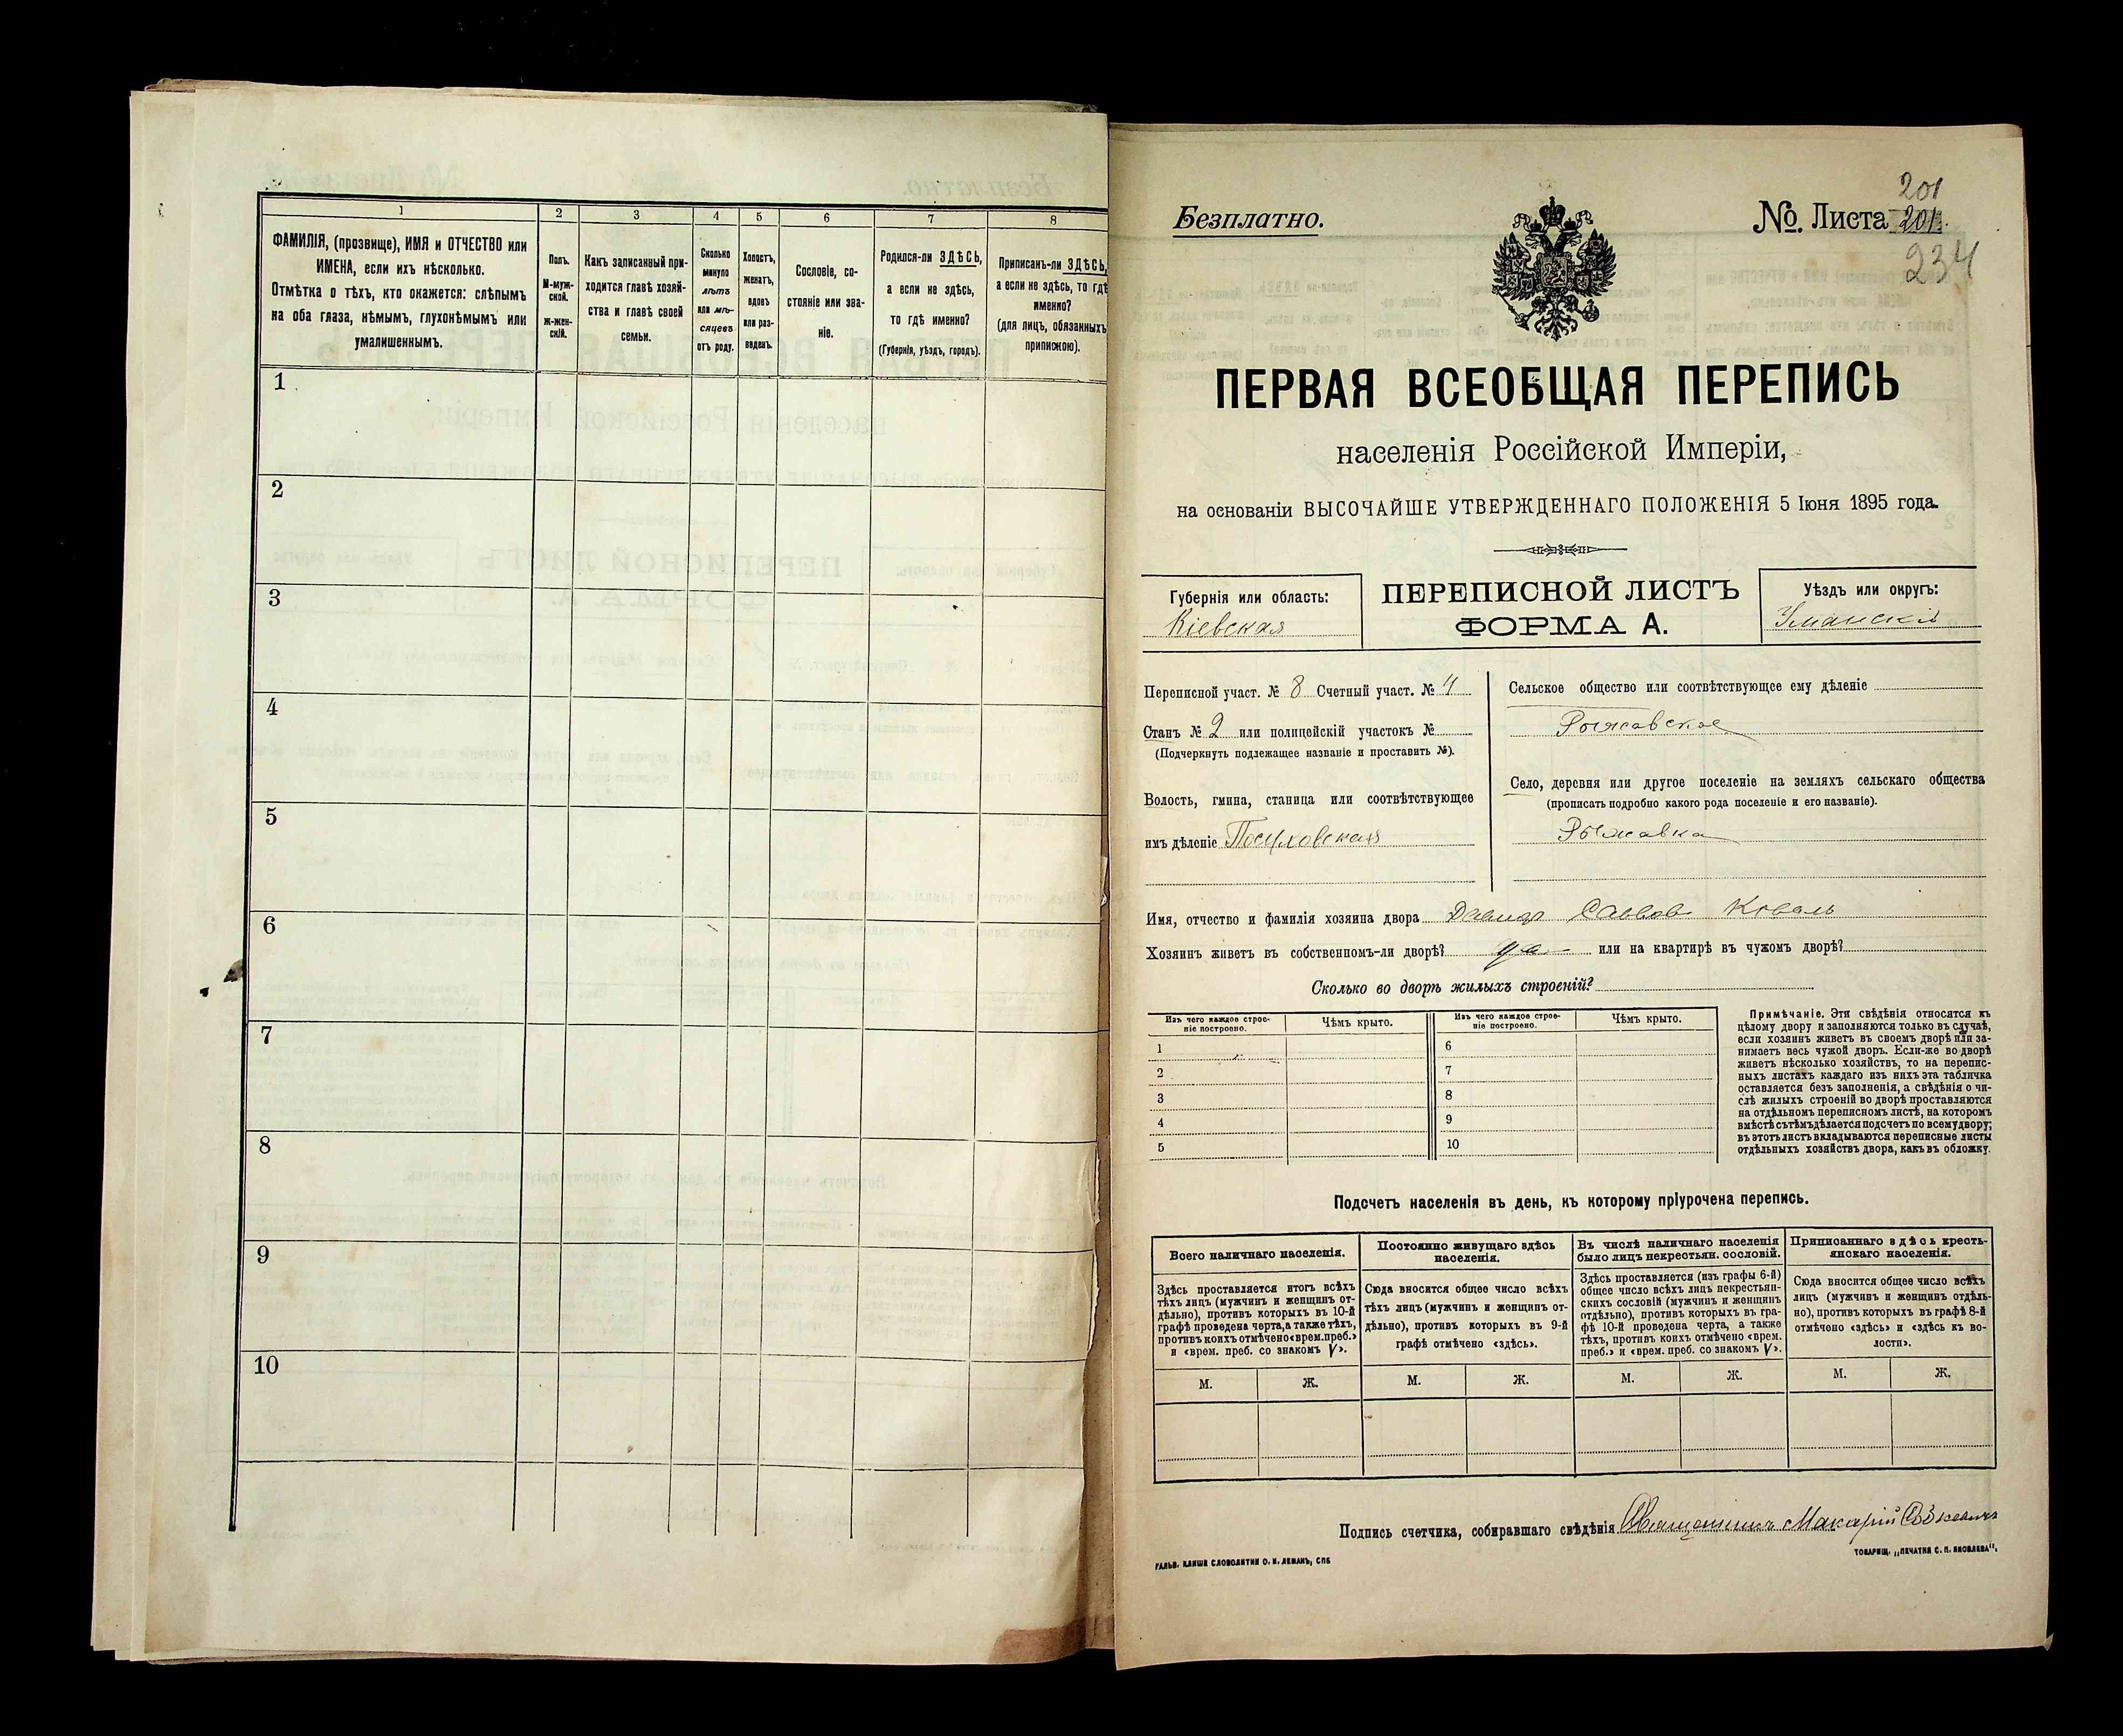 1
2
3
4
5
6
7
8
ФАМИЛІЯ, (прозвище), ИМЯ и ОТЧЕСТВО или
ИМЕНА, если ихъ нѣсколько.
Отмѣтка о тѣхъ, кто окажется: слѣпымъ
на оба глаза, нѣмымъ, глухонѣмымъ или
умалишеннымъ.
Полъ.
М-муж-
ской.
ж-жен-
скій.
Какъ записанный при-
ходится главѣ хозяй-
ства и главѣ своей
семьи.
Сколько
минуло
лѣтъ
или мѣ-
сяцевъ
отъ роду.
Холостъ,
женатъ,
вдовъ
или раз-
веденъ.
Сословіе, со-
стояніе или зва-
ніе.
Родился-ли ЗДѢСЬ,
а если не здѣсь,
то гдѣ именно?
(Губернія, уѣздъ, городъ).
Приписанъ-ли ЗДѢСЬ,
а если не здѣсь, то гдѣ
именно?
(для лицъ, обязанныхъ
припискою).
1
2
3
4
5
6
7
8
9
10
201
Безплатно.
№. Листа 201.
234
ПЕРВАЯ ВСЕОБЩАЯ ПЕРЕПИСЬ
населенія Россійской Имперіи,
на основаніи ВЫСОЧАЙШЕ УТВЕРЖДЕННАГО ПОЛОЖЕНІЯ 5 Іюня 1895 года.
Губернія или область:
Кіевская
ПЕРЕПИСНОЙ ЛИСТЪ
ФОРМА А.
Уѣздъ или округъ:
Уманскій
Переписной участ. № 8 Счетный участ. № 4
Станъ № 2 или полицейскій участокъ №
(Подчеркнуть подлежащее названіе и проставить №).
Волость, гмина, станица или соотвѣтствующее
имъ дѣленіе
Сельское общество или соотвѣтствующее ему дѣленіе
Рыжавское
Село, деревня или другое поселеніе на земляхъ сельскаго общества
(прописать подробно какого рода поселеніе и его названіе).
Рыжавка
Имя, отчество и фамилія хозяина двора Давидъ Саввовъ Коваль
Хозяинъ живетъ въ собственномъ-ли дворѣ? да или на квартирѣ въ чужомъ дворѣ?
Сколько во дворѣ жилыхъ строеній?
Изъ чего каждое строе-
ніе построено.
Чѣмъ крыто.
Изъ чего каждое строе-
ніе построено.
Чѣмъ крыто.
1
2
3
4
5
6
7
8
9
10
Примѣчаніе. Эти свѣдѣнія относятся къ
цѣлому двору и заполняются только въ случаѣ,
если хозяинъ живетъ въ своемъ дворѣ или за-
нимаетъ весь чужой дворъ. Если-же во дворѣ
живетъ нѣсколько хозяйствъ, то на перепис-
ныхъ листахъ каждаго изъ нихъ эта табличка
оставляется безъ заполненія, а свѣдѣнія о чи-
слѣ жилыхъ строеній во дворѣ проставляются
на отдѣльномъ переписномъ листѣ, на которомъ
вмѣстѣ съ тѣмъ дѣлается подсчетъ по всему двору;
въ этотъ листъ вкладываются переписные листы
отдѣльныхъ хозяйствъ двора, какъ въ обложку.
Подсчетъ населенія въ день, къ которому пріурочена перепись.
Всего наличнаго населенія.
Здѣсь проставляется итогъ всѣхъ
тѣхъ лицъ (мужчинъ и женщинъ от-
дѣльно), противъ которыхъ въ 10-й
графѣ проведена черта, а также тѣхъ,
противъ коихъ отмѣчено «врем. преб.»
и «врем. преб. со знакомъ V».
Постоянно живущаго здѣсь
населенія.
Сюда вносится общее число всѣхъ
тѣхъ лицъ (мужчинъ и женщинъ от-
дѣльно), противъ которыхъ въ 9-й
графѣ отмѣчено «здѣсь».
Въ числѣ наличнаго населенія
было лицъ некрестьян. сословій.
Здѣсь проставляется (изъ графы 6-й)
общее число всѣхъ лицъ некрестьян-
скихъ сословій (мужчинъ и женщинъ
отдѣльно), противъ которыхъ въ гра-
фѣ 10-й проведена черта, а также
тѣхъ, противъ коихъ отмѣчено «врем.
преб.» и «врем. преб. со знакомъ V».
Приписаннаго здѣсь кресть-
янскаго населенія.
Сюда вносится общее число всѣхъ
лицъ (мужчинъ и женщинъ отдѣль-
но), противъ которыхъ въ графѣ 8-й
отмѣчено «здѣсь» и «здѣсь къ во-
лости».
М. Ж. М. Ж. М. Ж. М. Ж.
Подпись счетчика, собиравшаго свѣдѣнія Священникъ Макарій
ГАЛЬВ. КЛИШЕ СЛОВОЛИТНИ О. И. ЛЕМАНЪ, СПБ
ТОВАРИЩ. „ПЕЧАТНЯ С. П. ЯКОВЛЕВА".